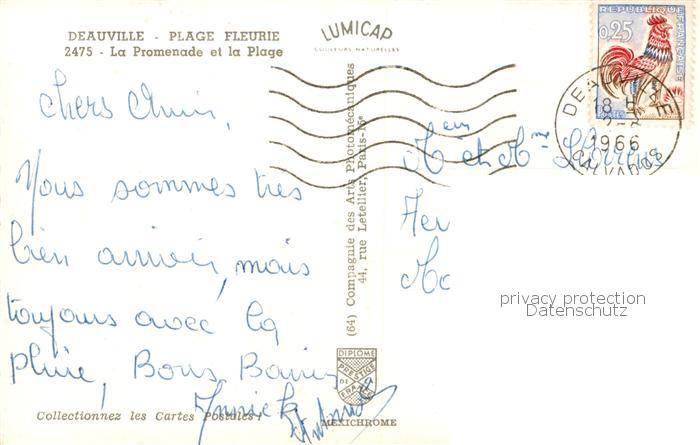 DEAUVILLE - PLAGE FLEURIE
2475 - La Promenade et la Plage
LUMICAP
COULEURS NATURELLES
REPUBLIQUE FRANCAISE
0,25
DEAUVILLE
18 H
1966
CALVADOS
Chers Amis,
Nous sommes très
bien arrivés, mais
toujours avec la
pluie, Bons Baisers
Annick
(64) Compagnie des Arts Photomécaniques
44, rue Letellier, Paris-15e
Mr et Mme
privacy protection
Datenschutz
DIPLOME
PRESTIGE
DE FRANCE
MEXICHROME
Collectionnez les Cartes Postales !